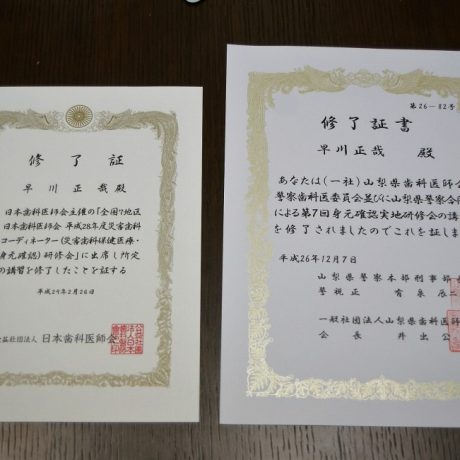 修了証
早川正哉殿
日本歯科医師会主催の「全国7地区
日本歯科医師会 平成28年度災害歯科
コーディネーター(災害歯科保健医療・
身元確認)研修会」に出席し所定
の講習を修了したことを証する
平成29年2月26日
益社団法人 日本歯科医師会
第26-82号
修了証書
早川正哉 殿
あなたは(一社)山梨県歯科医師会
警察歯科医委員会並びに山梨県警察合同
による第7回身元確認実地研修会の講
を修了されましたのでこれを証しま
平成26年12月7日
山梨県警察本部刑事部長
警視正 有泉辰二
一般社団法人山梨県歯科医師
会長 井出公